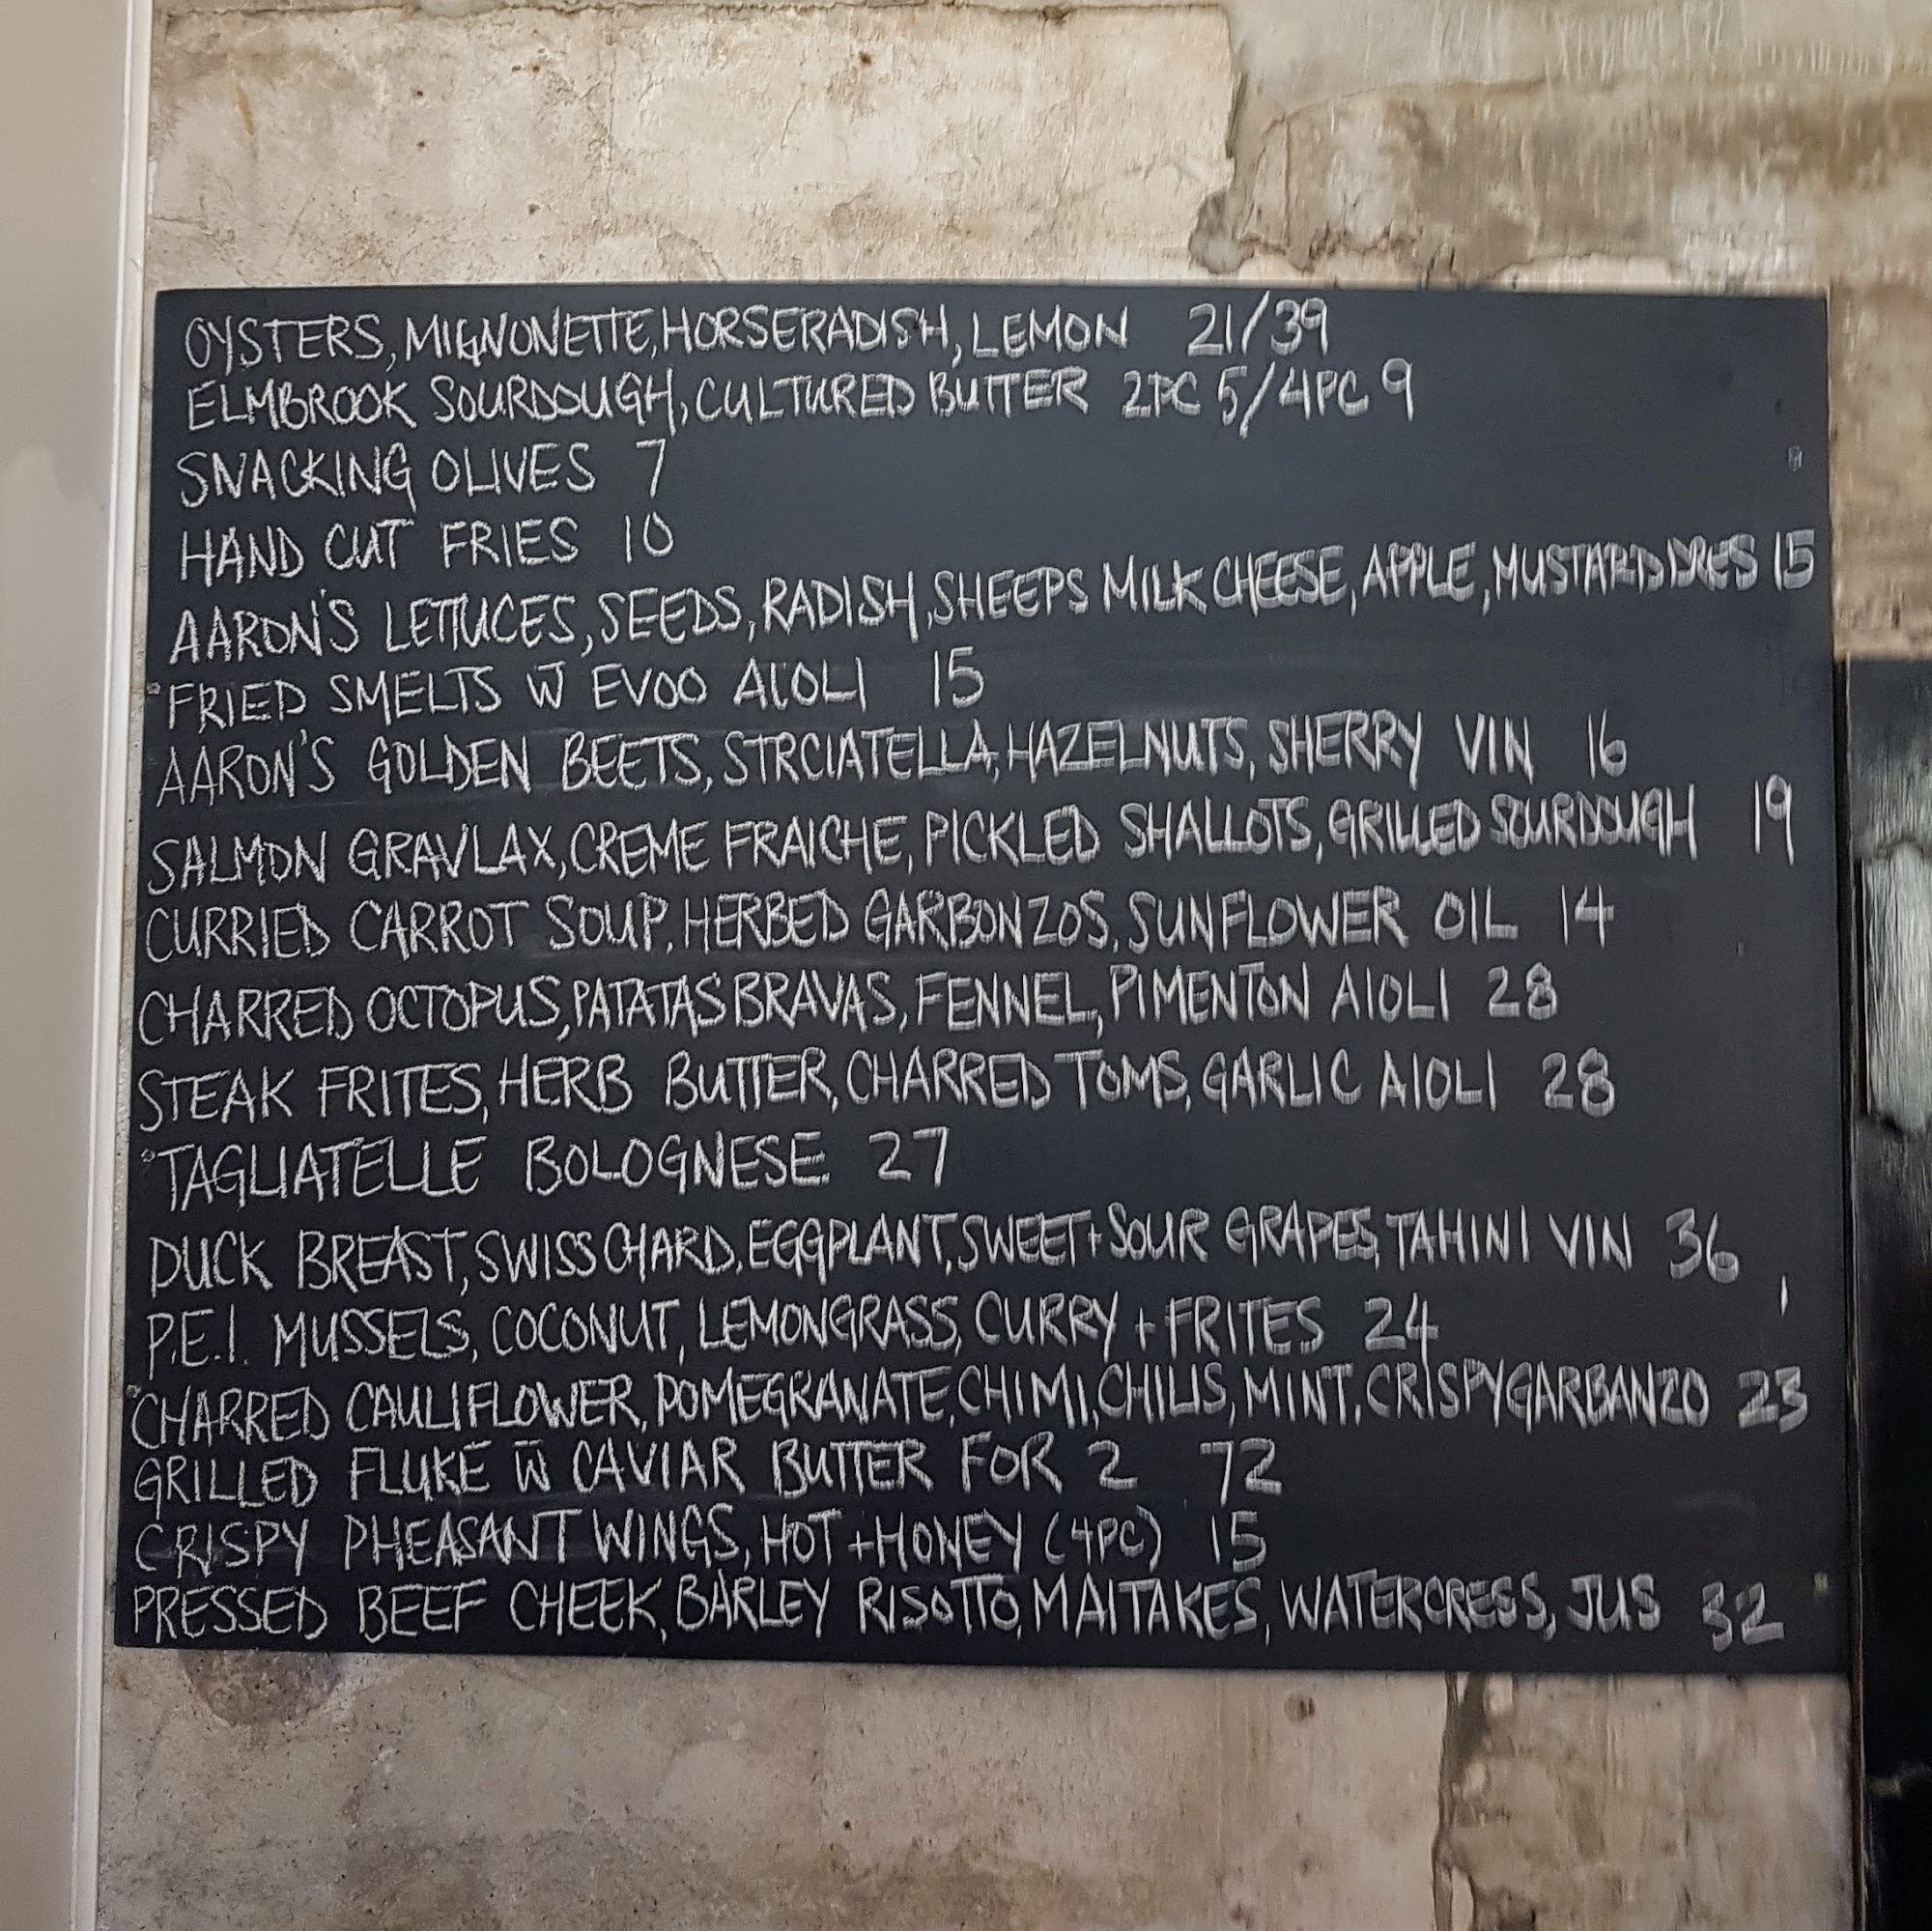 OYSTERS, MIGNONETTE, HORSERADISH, LEMON 21/39
ELMBROOK SOURDOUGH, CULTURED BUTTER 2PC 5/4PC 9
SNACKING OLIVES 7
HAND CUT FRIES 10
AARON'S LETTUCES, SEEDS, RADISH, SHEEPS MILK CHEESE, APPLE, MUSTARD DRES 15
FRIED SMELTS W EVOO AIOLI 15
AARON'S GOLDEN BEETS, STRCIATELLA, HAZELNUTS, SHERRY VIN 16
SALMON GRAVLAX, CREME FRAICHE, PICKLED SHALLOTS, GRILLED SOURDOUGH 19
CURRIED CARROT SOUP, HERBED GARBONZOS, SUNFLOWER OIL 14
CHARRED OCTOPUS, PATATAS BRAVAS, FENNEL, PIMENTON AIOLI 28
STEAK FRITES, HERB BUTTER, CHARRED TOMS, GARLIC AIOLI 28
TAGLIATELLE BOLOGNESE 27
DUCK BREAST, SWISS CHARD, EGGPLANT, SWEET + SOUR GRAPES, TAHINI VIN 36
P.E.I. MUSSELS, COCONUT, LEMONGRASS, CURRY + FRITES 24
CHARRED CAULIFLOWER, POMEGRANATE, CHIMI, CHILIS, MINT, CRISPY GARBANZO 23
GRILLED FLUKE W CAVIAR BUTTER FOR 2 72
CRISPY PHEASANT WINGS, HOT + HONEY (4PC) 15
PRESSED BEEF CHEEK, BARLEY RISOTTO, MAITAKES, WATERCRESS, JUS 32